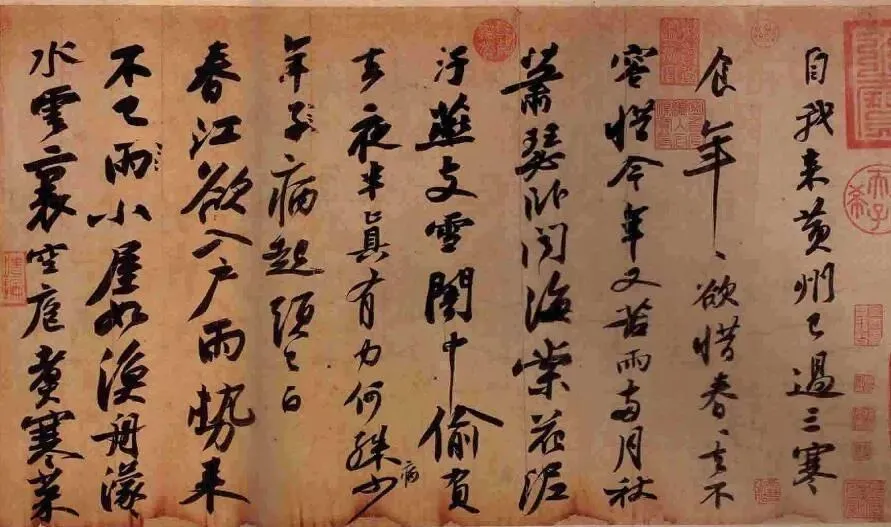 自我来黄州已過三寒
食年〻欲惜春〻去不
容惜今年又苦雨兩月秋
蕭瑟卧聞海棠花泥
汙燕支雪闇中偷負
去夜半真有力何殊少
病
年子病起頭已白
春江欲入户雨勢来
不已雨小屋如漁舟濛〻
水雲裏空庖煑寒菜